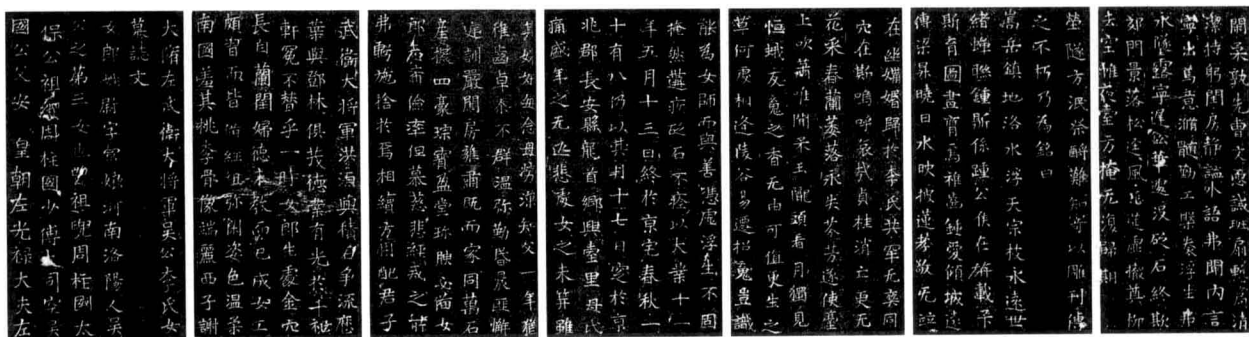 大隋左武衛大將軍吳公李氏女
墓誌文
女郎姓尉字富娘河南洛陽人吳
公之第三女也曾祖兜周柱國太
保公祖綱周柱國少傅大司空吳
國公父安皇朝左光祿大夫左
武衛大將軍洪源與積石爭流懋
葉與鄧林俱茂德業有光於千祀
軒冕不替乎一時女郎生處金穴
長自蘭閨婦德本教宛已成女工
頗習而皆備弥閑姿色溫柔
南國羞其桃李骨像端麗西子謝
每念母勞知父一年獲
齒卓不群溫弥勤晨昏匪懈
訓嚴閒房雍肅既而家同萬石
産擬四豪琮寶盈堂珠腴必備女
郎居而儉率但慕慈悲經戒之財
弗斁施捨於焉相續方用配君子
為女師而與善慿虛浮生不固
掩然遘疾砭石不救以大業十一
年五月十三日終於京宅春秋一
十有八仍以其月十七日窆於京
兆郡長安縣龍首鄉興臺里母氏
痛盛年之无匹悲處女之未笄雖
在幽媾婚歸於李氏共牢无爽同
穴在斯嗚呼哀哉貞桂消亡更无
花采春蘭萎落永失芬芳遂使臺
上吹簫唯聞玉隴頭看月獨見
恒娥反魂之香无由可值更生之
草何處相逢陵谷易遷招魂豈識
塋隧方泯榮酹難知寄以雕刊傳
之不朽乃為銘曰
嵩岳鎮地洛水浮天宗枝永遠世
緒蟬聯鍾斯係踵公侯在旃載子
斯育圖畫焉雅善鈆愛傾城遠
傳梁昇曉日水映披蓮孝敬无
閒柔敦先專誠班扇輒清
潔持躬閨房靜謐外語弗聞內言
寧出篤意滫髓勤工卷浮生弗
水隧露寧遅鈆華遽沒砭石終欺
郊門景落松迳風悲徒虛撤奠柳
去空帷黃方掩无復歸期